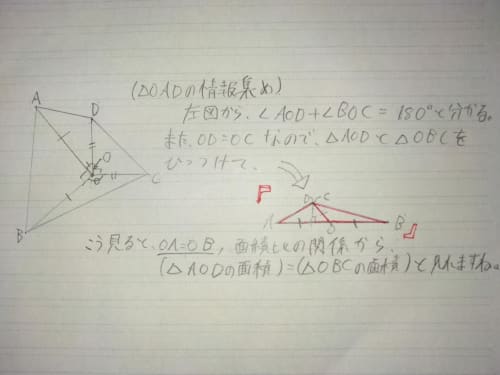 (△OADの情報集め)
左図から、∠AOD+∠BOC=180°と分かる。
また、OD=OCなので、△AODと△OBCを
ひっつけて、
A
D
O
C
B
D C
A
O
B
こう見ると、OA=OB、面積比の関係から、
(△AODの面積)=(△OBCの面積)と